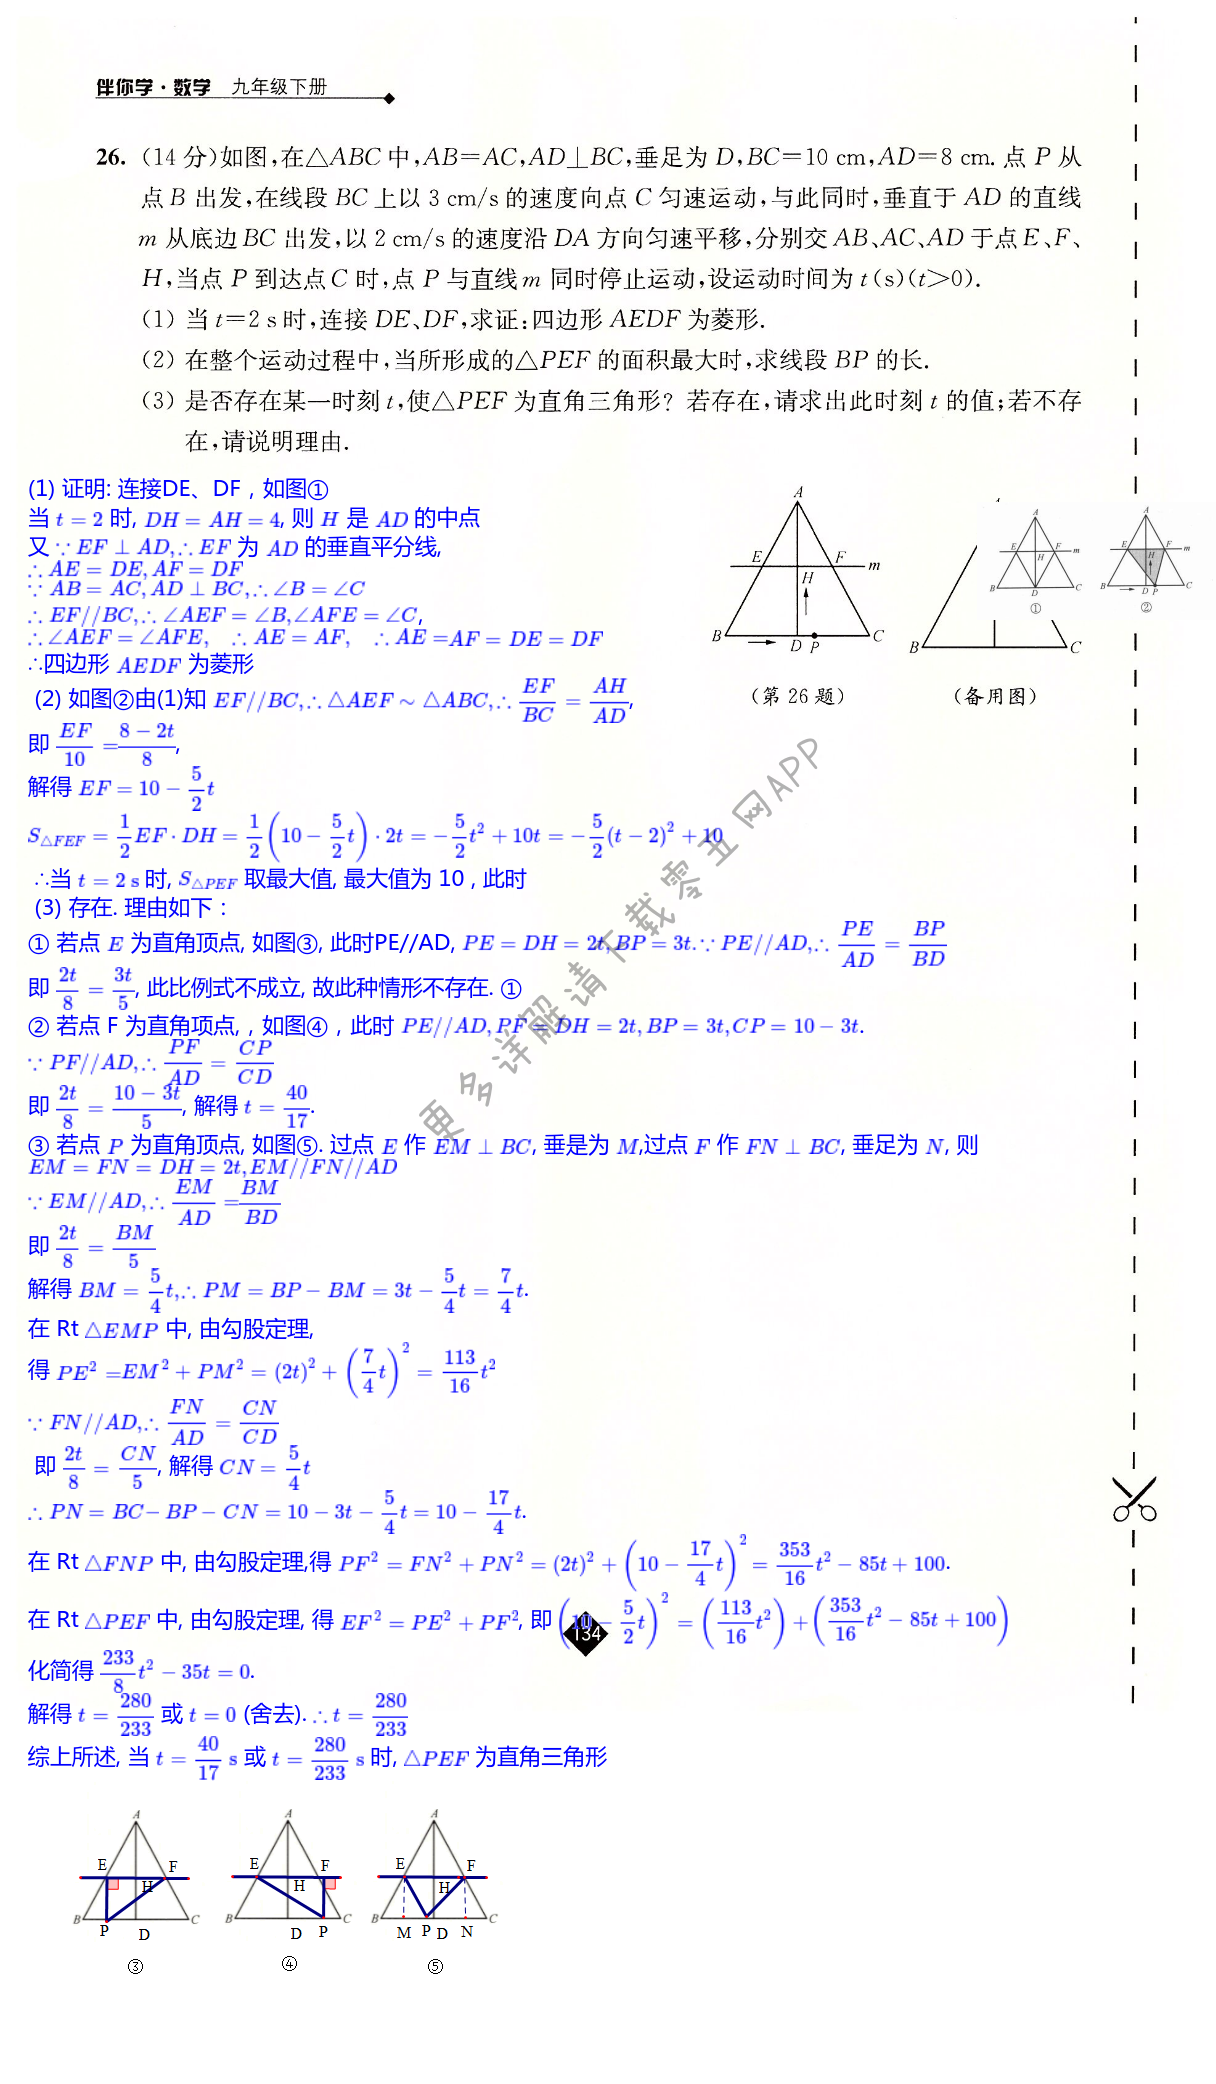 伴你学·数学 九年级下册
26. (14 分)如图,在△ABC 中,AB=AC,AD⊥BC,垂足为 D,BC=10 cm,AD=8 cm. 点 P 从
点 B 出发,在线段 BC 上以 3 cm/s 的速度向点 C 匀速运动,与此同时,垂直于 AD 的直线
m 从底边 BC 出发,以 2 cm/s 的速度沿 DA 方向匀速平移,分别交 AB、AC、AD 于点 E、F、
H,当点 P 到达点 C 时,点 P 与直线 m 同时停止运动,设运动时间为 t(s)(t>0).
(1) 当 t=2 s 时,连接 DE、DF,求证:四边形 AEDF 为菱形.
(2) 在整个运动过程中,当所形成的△PEF 的面积最大时,求线段 BP 的长.
(3) 是否存在某一时刻 t,使△PEF 为直角三角形? 若存在,请求出此时刻 t 的值;若不存
在,请说明理由.
(1) 证明: 连接DE、DF，如图①
当 t = 2 时, DH = AH = 4, 则 H 是 AD 的中点
又 ∵ EF ⊥ AD,∴ EF 为 AD 的垂直平分线,
∴ AE = DE, AF = DF
∵ AB = AC, AD ⊥ BC,∴ ∠B = ∠C
∴ EF//BC,∴ ∠AEF = ∠B,∠AFE = ∠C,
∴ ∠AEF = ∠AFE, ∴ AE = AF, ∴ AE =AF = DE = DF
∴四边形 AEDF 为菱形
A
E F m
H
B D P C
(第 26 题)
B C
(备用图)
A
E F m
H
B D C
①
A
E F m
H
B D P C
②
(2) 如图②由(1)知 EF//BC,∴ △AEF ~ △ABC,∴ EF/BC = AH/AD,
即 EF/10 = (8 − 2t)/8,
解得 EF = 10 − 5/2 t
S△FEF = 1/2 EF · DH = 1/2 (10 − 5/2 t) · 2t = − 5/2 t² + 10t = − 5/2 (t − 2)² + 10
∴当 t = 2 s 时, S△PEF 取最大值, 最大值为 10 , 此时
(3) 存在. 理由如下：
① 若点 E 为直角顶点, 如图③, 此时PE//AD, PE = DH = 2t, BP = 3t.∵ PE//AD,∴ PE/AD = BP/BD
即 2t/8 = 3t/5, 此比例式不成立, 故此种情形不存在. ①
② 若点 F 为直角项点,，如图④，此时 PE//AD, PF = DH = 2t, BP = 3t, CP = 10 − 3t.
∵ PF//AD,∴ PF/AD = CP/CD
即 2t/8 = (10 − 3t)/5, 解得 t = 40/17.
③ 若点 P 为直角顶点, 如图⑤. 过点 E 作 EM ⊥ BC, 垂是为 M,过点 F 作 FN ⊥ BC, 垂足为 N, 则
EM = FN = DH = 2t, EM//FN//AD
∵ EM//AD,∴ EM/AD = BM/BD
即 2t/8 = BM/5
解得 BM = 5/4 t,∴ PM = BP − BM = 3t − 5/4 t = 7/4 t.
在 Rt △EMP 中, 由勾股定理,
得 PE² =EM² + PM² = (2t)² + (7/4 t)² = 113/16 t²
∵ FN//AD,∴ FN/AD = CN/CD
即 2t/8 = CN/5, 解得 CN = 5/4 t
∴ PN = BC − BP − CN = 10 − 3t − 5/4 t = 10 − 17/4 t.
在 Rt △FNP 中, 由勾股定理,得 PF² = FN² + PN² = (2t)² + (10 − 17/4 t)² = 353/16 t² − 85t + 100.
在 Rt △PEF 中, 由勾股定理, 得 EF² = PE² + PF², 即 (10 − 5/2 t)² = (113/16 t²) + (353/16 t² − 85t + 100)
134
化简得 233/8 t² − 35t = 0.
解得 t = 280/233 或 t = 0 (舍去). ∴ t = 280/233
综上所述, 当 t = 40/17 s 或 t = 280/233 s 时, △PEF 为直角三角形
A
E F
H
B P D C
③
A
E F
H
B D P C
④
A
E F
H
B M P D N C
⑤
更多详解请下载零五网APP